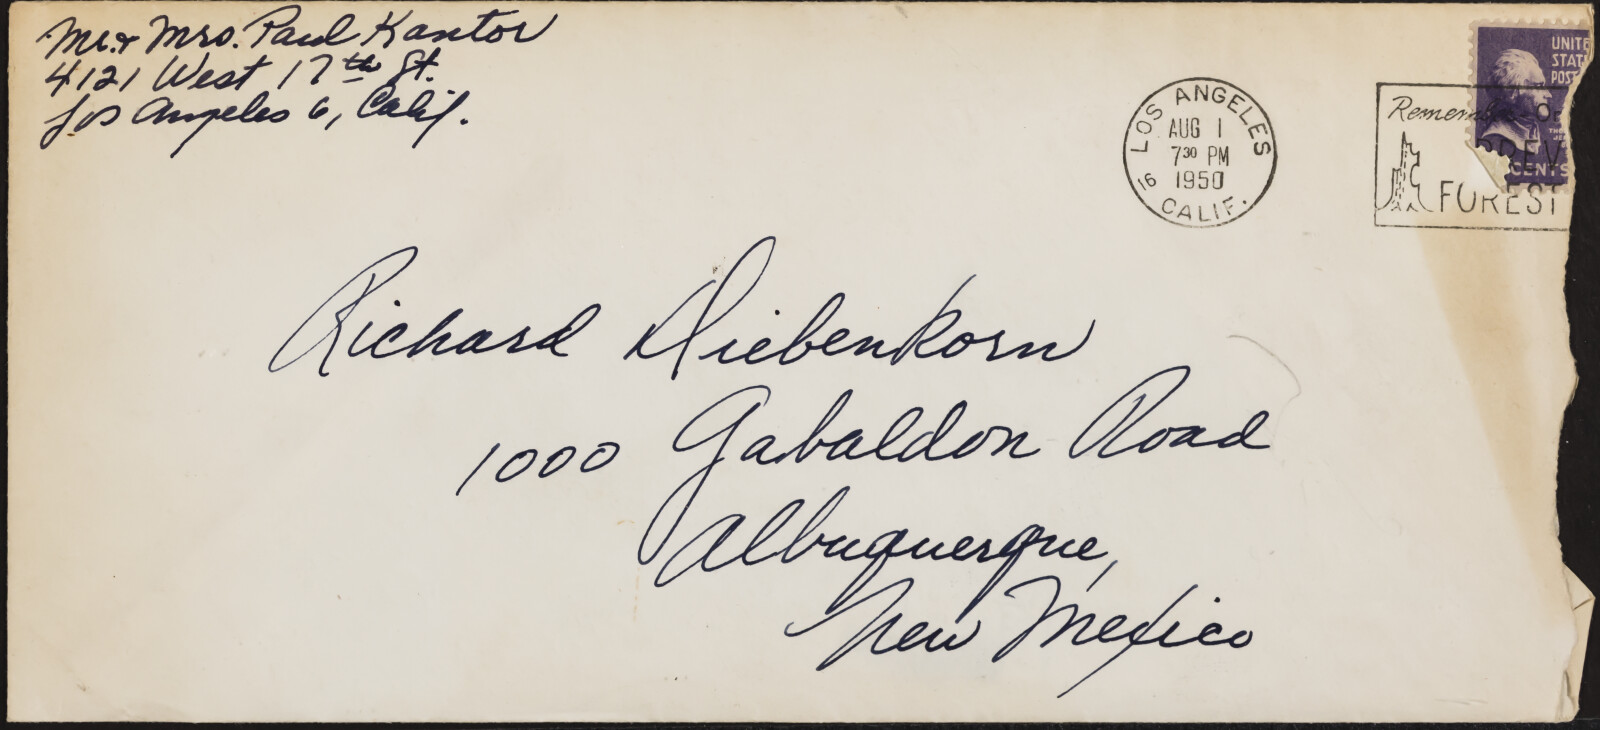 Mr. & Mrs. Paul Kantor
4121 West 17th St.
Los Angeles 6, Calif.
LOS ANGELES
AUG 1
7 30 PM
1950
16
CALIF.
UNITE
STAT
POST
CENTS
FOREST
Richard Diebenkorn
1000 Gabaldon Road
Albuquerque,
New Mexico